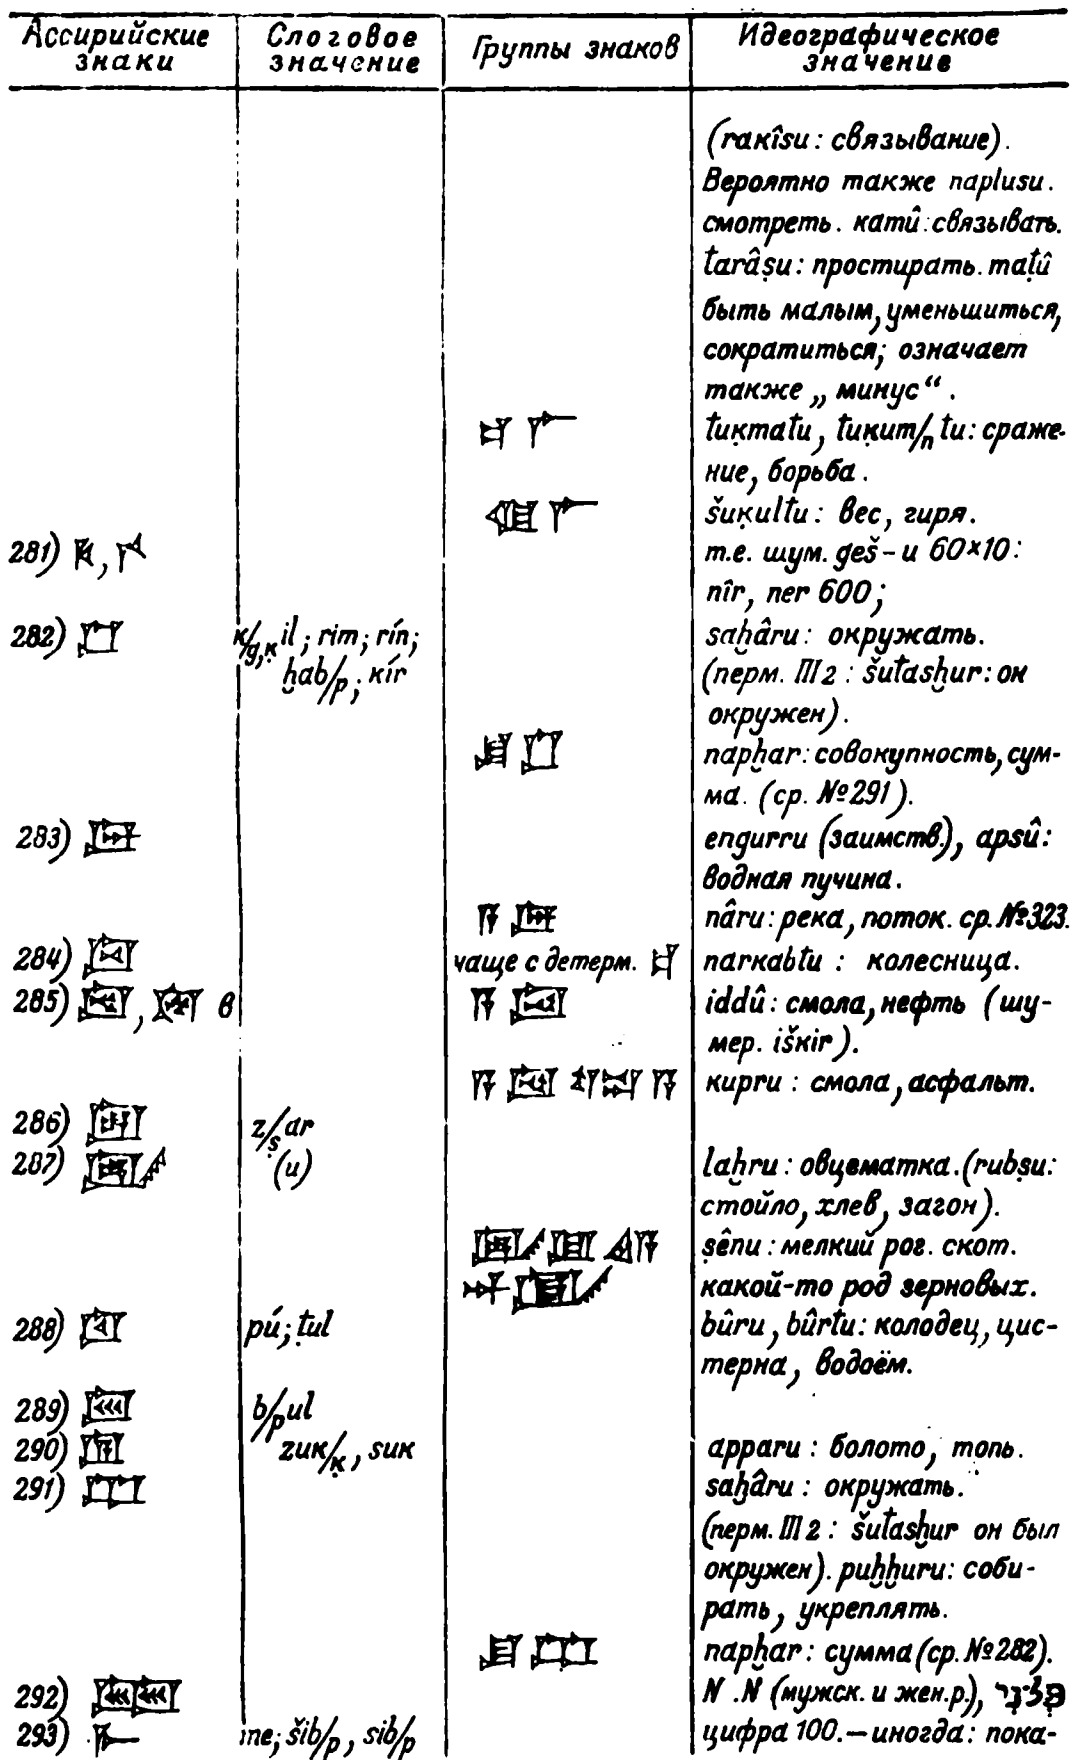 Ассирийские знаки Слоговое значение Группы знаков Идеографическое значение
(rакîsu: связывание).
Вероятно также naplusu.
смотреть. катû: связывать.
tarâṣu: простирать. maṭû
быть малым, уменьшиться,
сократиться; означает
также „ минус“.
tuḳmatu, tuḳum/n tu: сраже-
ние, борьба.
šuḳultu: вес, гиря.
281) , т.е. шум. geš-u 60×10:
nîr, ner 600;
282) к/g,ḳ il; rim; rín; saḫâru: окружать.
ḫab/p; кír (перм. III 2: šutasḫur: он
окружен).
napḫar: совокупность, сум-
ма. (ср. №291).
283) engurru (заимств.), apsû:
водная пучина.
nâru: река, поток. ср. №323.
284) чаще с детерм. narкabtu: колесница.
285) , в iddû: смола, нефть (шу-
мер. iškir).
кupru: смола, асфальт.
286) z/ṣ ar
287) (u) laḫru: овцематка. (rubṣu:
стойло, хлев, загон).
ṣênu: мелкий рог. скот.
какой-то род зерновых.
288) pú; ṭul bûru, bûrtu: колодец, цис-
терна, водоём.
289) b/p ul
290) zuк/ḳ, suк apparu: болото, топь.
291) saḫâru: окружать.
(перм. III 2: šutasḫur он был
окружен). puḫḫuru: соби-
рать, укреплять.
napḫar: сумма (ср. №282).
292) N.N (мужск. и жен.р.),
293) me; šib/p, sib/p цифра 100.—иногда: пока-